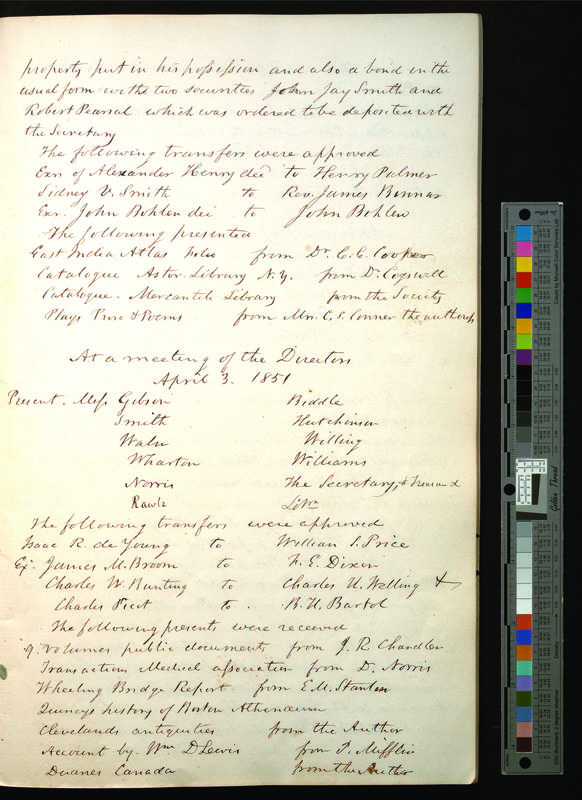 property put in his possession and also a bond in the
usual form with two securities John Jay Smith and
Robert Pearsal which was ordered to be deposited with
the Secretary
The following transfers were approved
Exr of Alexander Henry decd to Henry Palmer
Sidney V. Smith to Rev. James Bonnar
Exr. John Bohlen dec to John Bohlen
The following presented
East India Atlas folio from Dr. C. C. Cooper
Catalogue Astor Library N.Y. from Dr Cogswell
Catalogue. Mercantile Library from the Society
Plays Prose & Poems from Mrs. C. S. Conner the authoress
At a meeting of the Directors
April 3. 1851
Present. Mess Gibson Biddle
Smith Hutchinson
Waln Willing
Wharton Williams
Norris The Secretary, & Treasurer
Rawle Libn
The following transfers were approved
Isaac R. de Young to William S. Price
Ex. James M. Broom to F. E. Dixon
Charles W. Bunting to Charles U. Welling
Charles Picot to B. H. Bartol
The following presents were received
9. volumes public documents from J. R. Chandler
Transaction Medical association from D. Norris
Wheeling Bridge Report from E. M. Stanton
Quincys history of Boston Athenaeum
Clevelands antiquities from the Author
Account by. Wm D Lewis from J. Mifflin
Duanes Canada from the Author
Golden Thread